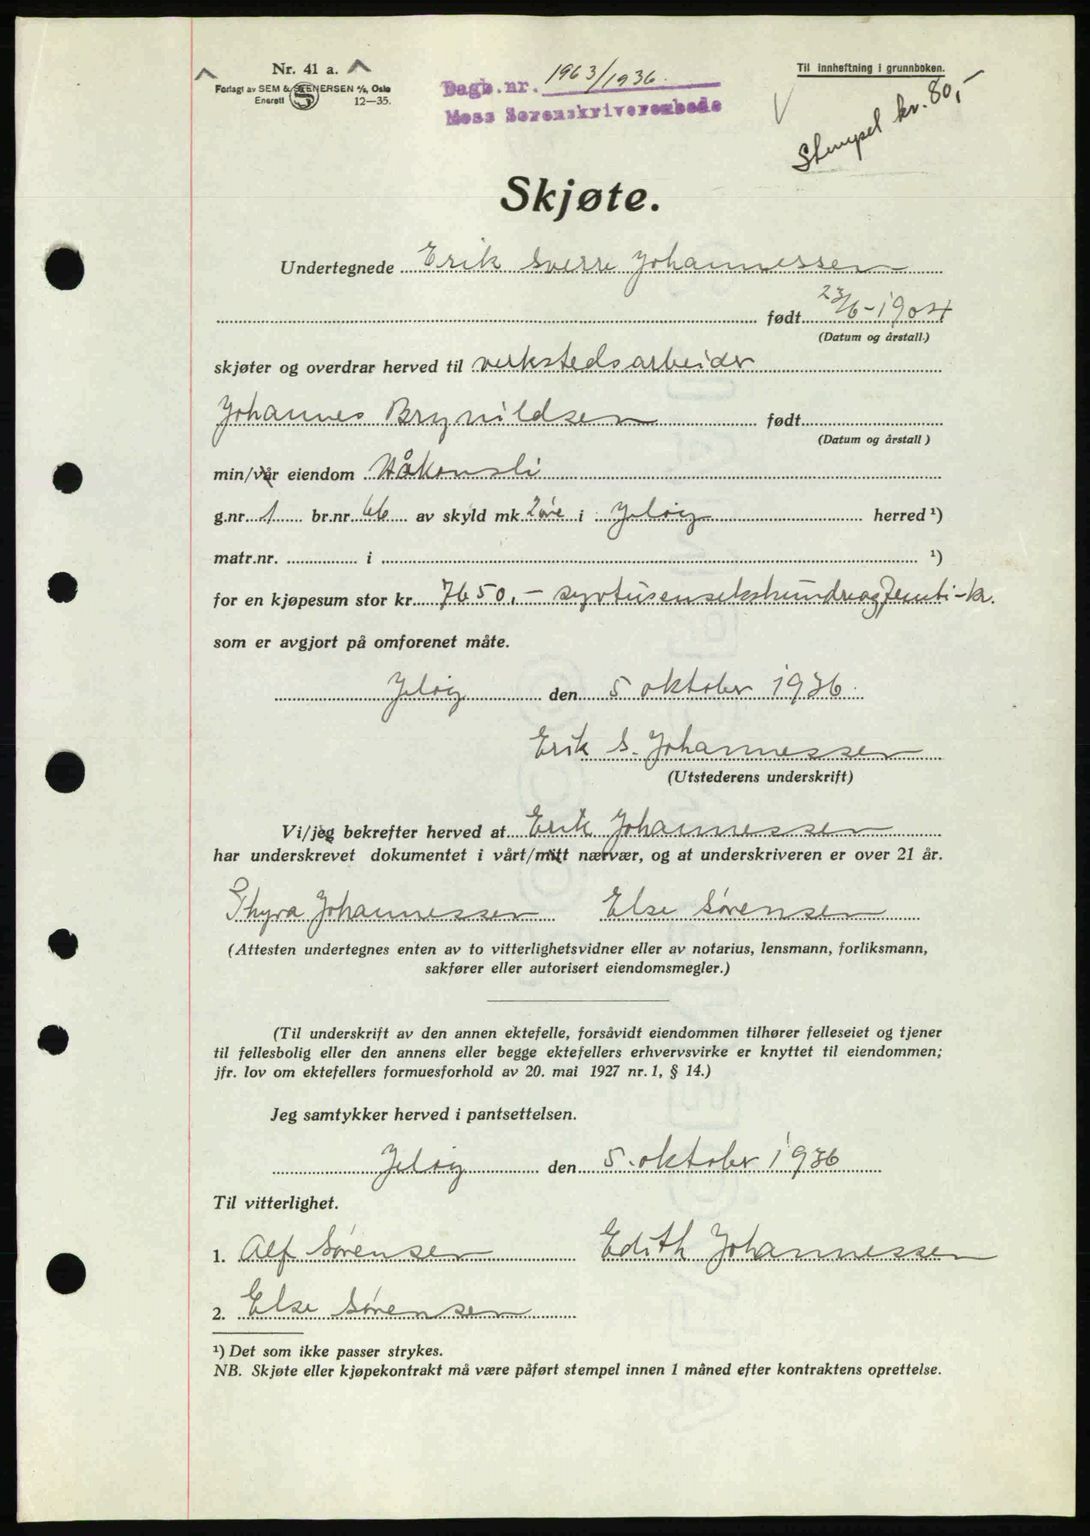 Nr. 41 a.
Forlagt av SEM & STENERSEN A/S, Oslo
Enerett 12—35.
Dagb.nr. 1963/1936.
Moss Sorenskriverembede
Til innheftning i grunnboken.
Stempel kr. 80,-
Skjøte.
Undertegnede Erik Sverre Johannessen
født 23/6-1904
(Datum og årstall.)
skjøter og overdrar herved til verkstedsarbeider
Johannes Brynildsen født
(Datum og årstall)
min/vår eiendom Håkonsli
g.nr 1 br.nr 66 av skyld mk 2 øre i Jeløy herred ¹)
matr.nr. i ¹)
for en kjøpesum stor kr. 7650,- syvtusensekshundreogfemti-kr.
som er avgjort på omforenet måte.
Jeløy den 5 oktober 1936.
Erik S. Johannessen
(Utstederens underskrift)
Vi/jeg bekrefter herved at Erik Johannessen
har underskrevet dokumentet i vårt/mitt nærvær, og at underskriveren er over 21 år.
Thyra Johannessen Else Sørensen
(Attesten undertegnes enten av to vitterlighetsvidner eller av notarius, lensmann, forliksmann,
sakfører eller autorisert eiendomsmegler.)
(Til underskrift av den annen ektefelle, forsåvidt eiendommen tilhører felleseiet og tjener
til fellesbolig eller den annens eller begge ektefellers erhvervsvirke er knyttet til eiendommen;
jfr. lov om ektefellers formuesforhold av 20. mai 1927 nr. 1, § 14.)
Jeg samtykker herved i pantsettelsen.
Jeløy den 5. oktober 1936
Til vitterlighet.
1. Alf Sørensen Edith Johannessen
2. Else Sørensen
¹) Det som ikke passer strykes.
NB. Skjøte eller kjøpekontrakt må være påført stempel innen 1 måned efter kontraktens oprettelse.